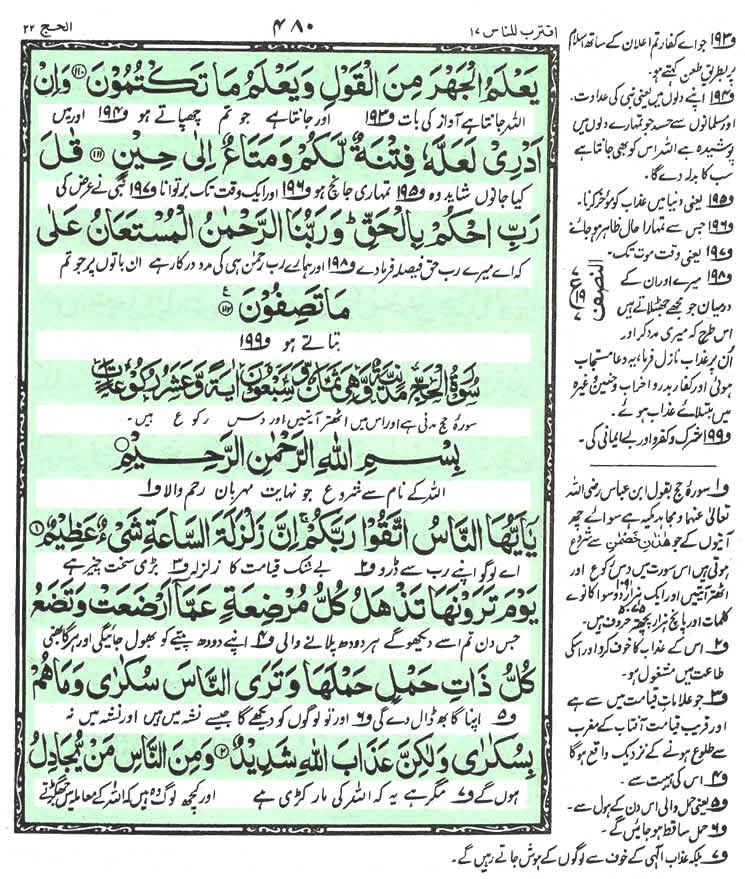 الحج ٢٢
٤٨٠
اقترب للناس ١٧
يَعْلَمُ الْجَهْرَ مِنَ الْقَوْلِ وَيَعْلَمُ مَا تَكْتُمُوْنَ ﴿۱۱۰﴾ وَاِنْ
اللہ جانتا ہے آواز کی بات ف۱۹۳ اور جانتا ہے جو تم چھپاتے ہو ف۱۹۴ اور میں
اَدْرِیْ لَعَلَّهٗ فِتْنَةٌ لَّكُمْ وَمَتَاعٌ اِلٰی حِیْنٍ ﴿۱۱۱﴾ قٰلَ
کیا جانوں شاید وہ ف۱۹۵ تمہاری جانچ ہو ف۱۹۶ اور ایک وقت تک برتوانا ف۱۹۷ نبی نے عرض کی
رَبِّ احْكُمْ بِالْحَقِّ ؕ وَرَبُّنَا الرَّحْمٰنُ الْمُسْتَعَانُ عَلٰی
کہ اے میرے رب حق فیصلہ فرمادے ف۱۹۸ اور ہمارے رب رحمٰن ہی کی مدد درکار ہے ان باتوں پر جو تم
مَا تَصِفُوْنَ ﴿۱۱۲﴾ ع
بتاتے ہو ف۱۹۹
سُوْرَةُ الْحَجِّ مَدَنِیَّةٌ وَّهِیَ ثَمَانٌ وَّسَبْعُوْنَ اٰیَةً وَّعَشَرُ رُكُوْعَاتٍ
سورۂ حج مدنی ہے اور اس میں اٹھتر آیتیں اور دس رکوع ہیں۔
بِسْمِ اللّٰهِ الرَّحْمٰنِ الرَّحِیْمِ
اللہ کے نام سے شروع جو نہایت مہربان رحم والا ف۱
یٰۤاَیُّهَا النَّاسُ اتَّقُوْا رَبَّكُمْ ۚ اِنَّ زَلْزَلَةَ السَّاعَةِ شَیْءٌ عَظِیْمٌ ﴿۱﴾
اے لوگو اپنے رب سے ڈرو ف۲ بے شک قیامت کا زلزلہ ف۳ بڑی سخت چیز ہے
یَوْمَ تَرَوْنَهَا تَذْهَلُ كُلُّ مُرْضِعَةٍ عَمَّاۤ اَرْضَعَتْ وَتَضَعُ
جس دن تم اسے دیکھو گے ہر دودھ پلانے والی ف۴ اپنے دودھ پیتے کو بھول جائیگی اور ہر گابھنی
كُلُّ ذَاتِ حَمْلٍ حَمْلَهَا وَتَرَی النَّاسَ سُكٰرٰی وَمَا هُمْ
ف۵ اپنا گابھ ڈال دے گی ف۶ اور تو لوگوں کو دیکھے گا جیسے نشہ میں ہیں اور نشہ میں نہ
بِسُكٰرٰی وَلٰكِنَّ عَذَابَ اللّٰهِ شَدِیْدٌ ﴿۲﴾ وَمِنَ النَّاسِ مَنْ یُّجَادِلُ
ہوں گے ف۷ مگر ہے یہ کہ اللہ کی مار کڑی ہے اور کچھ لوگ وہ ہیں کہ اللہ کے معاملہ میں جھگڑتے
النصف
۱۹
ف۱۹۳ جو اے کفار تم اعلان کے ساتھ اسلام
پر بطریق طعن کہتے ہو۔
ف۱۹۴ اپنے دلوں میں یعنی نبی کی عداوت
اور مسلمانوں سے حسد جو تمہارے دلوں میں
پوشیدہ ہے اللہ اس کو بھی جانتا ہے
سب کا بدلہ دے گا۔
ف۱۹۵ یعنی دنیا میں عذاب کو مؤخر کرنا۔
ف۱۹۶ جس سے تمہارا حال ظاہر ہو جائے
ف۱۹۷ یعنی وقت موت تک۔
ف۱۹۸ میرے اور ان کے
درمیان جو مجھے جھٹلاتے ہیں
اس طرح کہ میری مدد کر اور
اُن پر عذاب نازل فرما، یہ دعا مستجاب
ہوئی اور کفار بدر و احزاب و حنین وغیرہ
میں مبتلائے عذاب ہوئے۔
ف۱۹۹ شرک و کفر اور بے ایمانی کی۔
ف۱ سورۂ حج بقول ابن عباس رضی اللہ
تعالیٰ عنہما و مجاہد مکیہ ہے سوائے چھ
آیتوں کے جو هٰذٰنِ خَصْمٰنِ سے شروع
ہوتی ہیں اس سورت میں دس رکوع اور
اٹھتر آیتیں اور ایک ہزار دو سو اکانوے
کلمات اور پانچ ہزار پچھتر حروف ہیں۔
ف۲ اس کے عذاب کا خوف کرو اور اسکی
طاعت میں مشغول ہو۔
ف۳ جو علاماتِ قیامت میں سے ہے
اور قریبِ قیامت آفتاب کے مغرب
سے طلوع ہونے کے نزدیک واقع ہوگا
ف۴ اس کی ہیبت سے۔
ف۵ یعنی حمل والی اس دن کے ہول سے۔
ف۶ حمل ساقط ہو جائیں گے۔
ف۷ بلکہ عذاب الٰہی کے خوف سے لوگوں کے ہوش جاتے رہیں گے۔